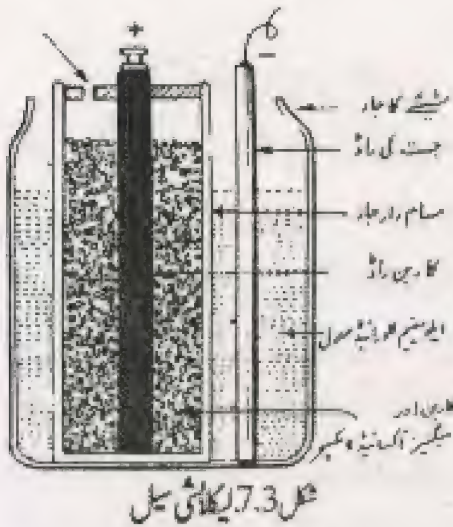 +
−
شیشے کا جار
جست کی راڈ
مسام دار جار
کاربن راڈ
امونیم کلورائیڈ محلول
کاربن اور
مینگنیز آکسائیڈ کا مکسچر
شکل 7.3 لیکلانشی سیل